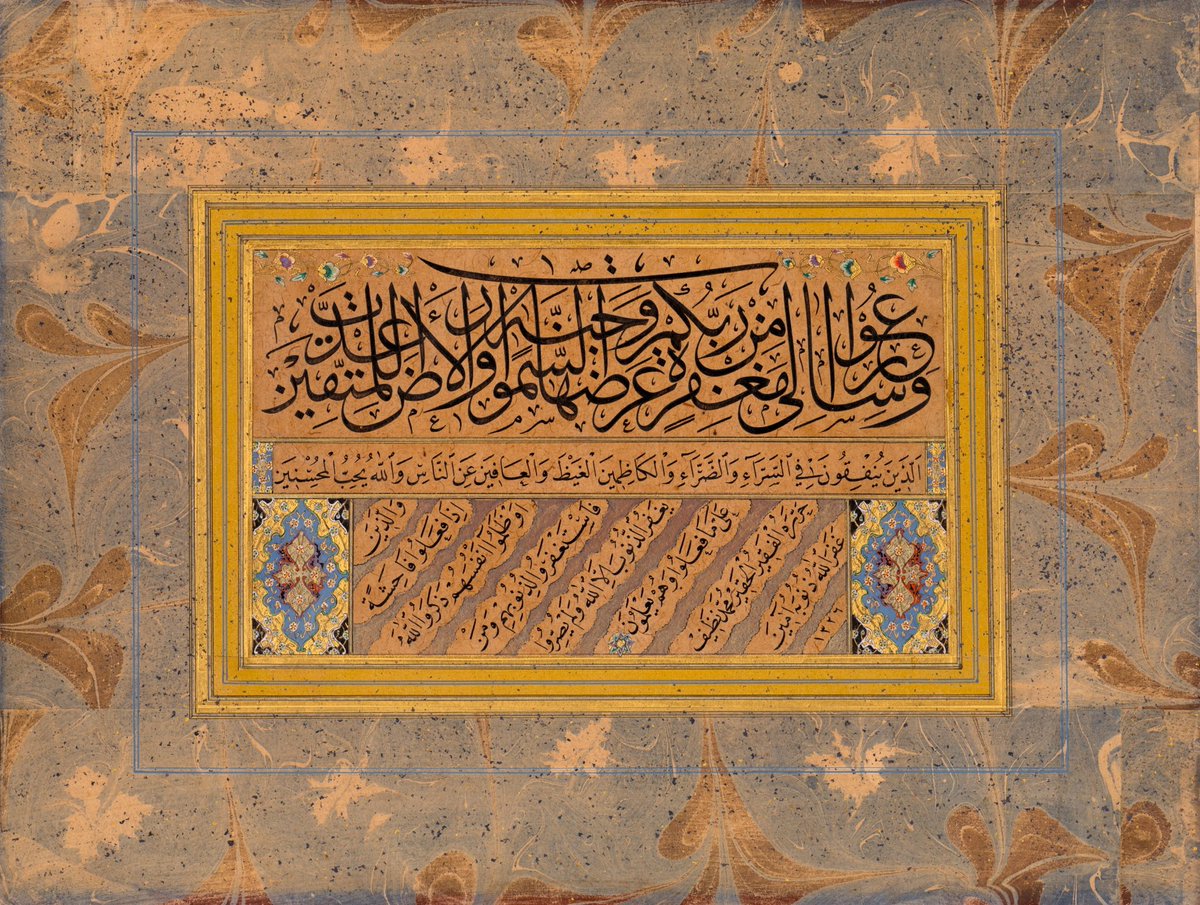 وَسَارِعُوا اِلٰى مَغْفِرَةٍ مِنْ رَبِّكُمْ وَجَنَّةٍ عَرْضُهَا السَّمٰوَاتُ وَالْاَرْضُ اُعِدَّتْ لِلْمُتَّقِينَ
الَّذِينَ يُنْفِقُونَ فِي السَّرَّاءِ وَالضَّرَّاءِ وَالْكَاظِمِينَ الْغَيْظَ وَالْعَافِينَ عَنِ النَّاسِ وَاللّٰهُ يُحِبُّ الْمُحْسِنِينَ
وَالَّذِينَ
اِذَا فَعَلُوا فَاحِشَةً
اَوْ ظَلَمُوا اَنْفُسَهُمْ ذَكَرُوا اللّٰهَ
فَاسْتَغْفَرُوا لِذُنُوبِهِمْ وَمَنْ
يَغْفِرُ الذُّنُوبَ اِلَّا اللّٰهُ وَلَمْ يُصِرُّوا
عَلٰى مَا فَعَلُوا وَهُمْ يَعْلَمُونَ
حرره الفقير الحقير محمد نظيف
غفر الله ذنوبه آمين
١٢٢٦